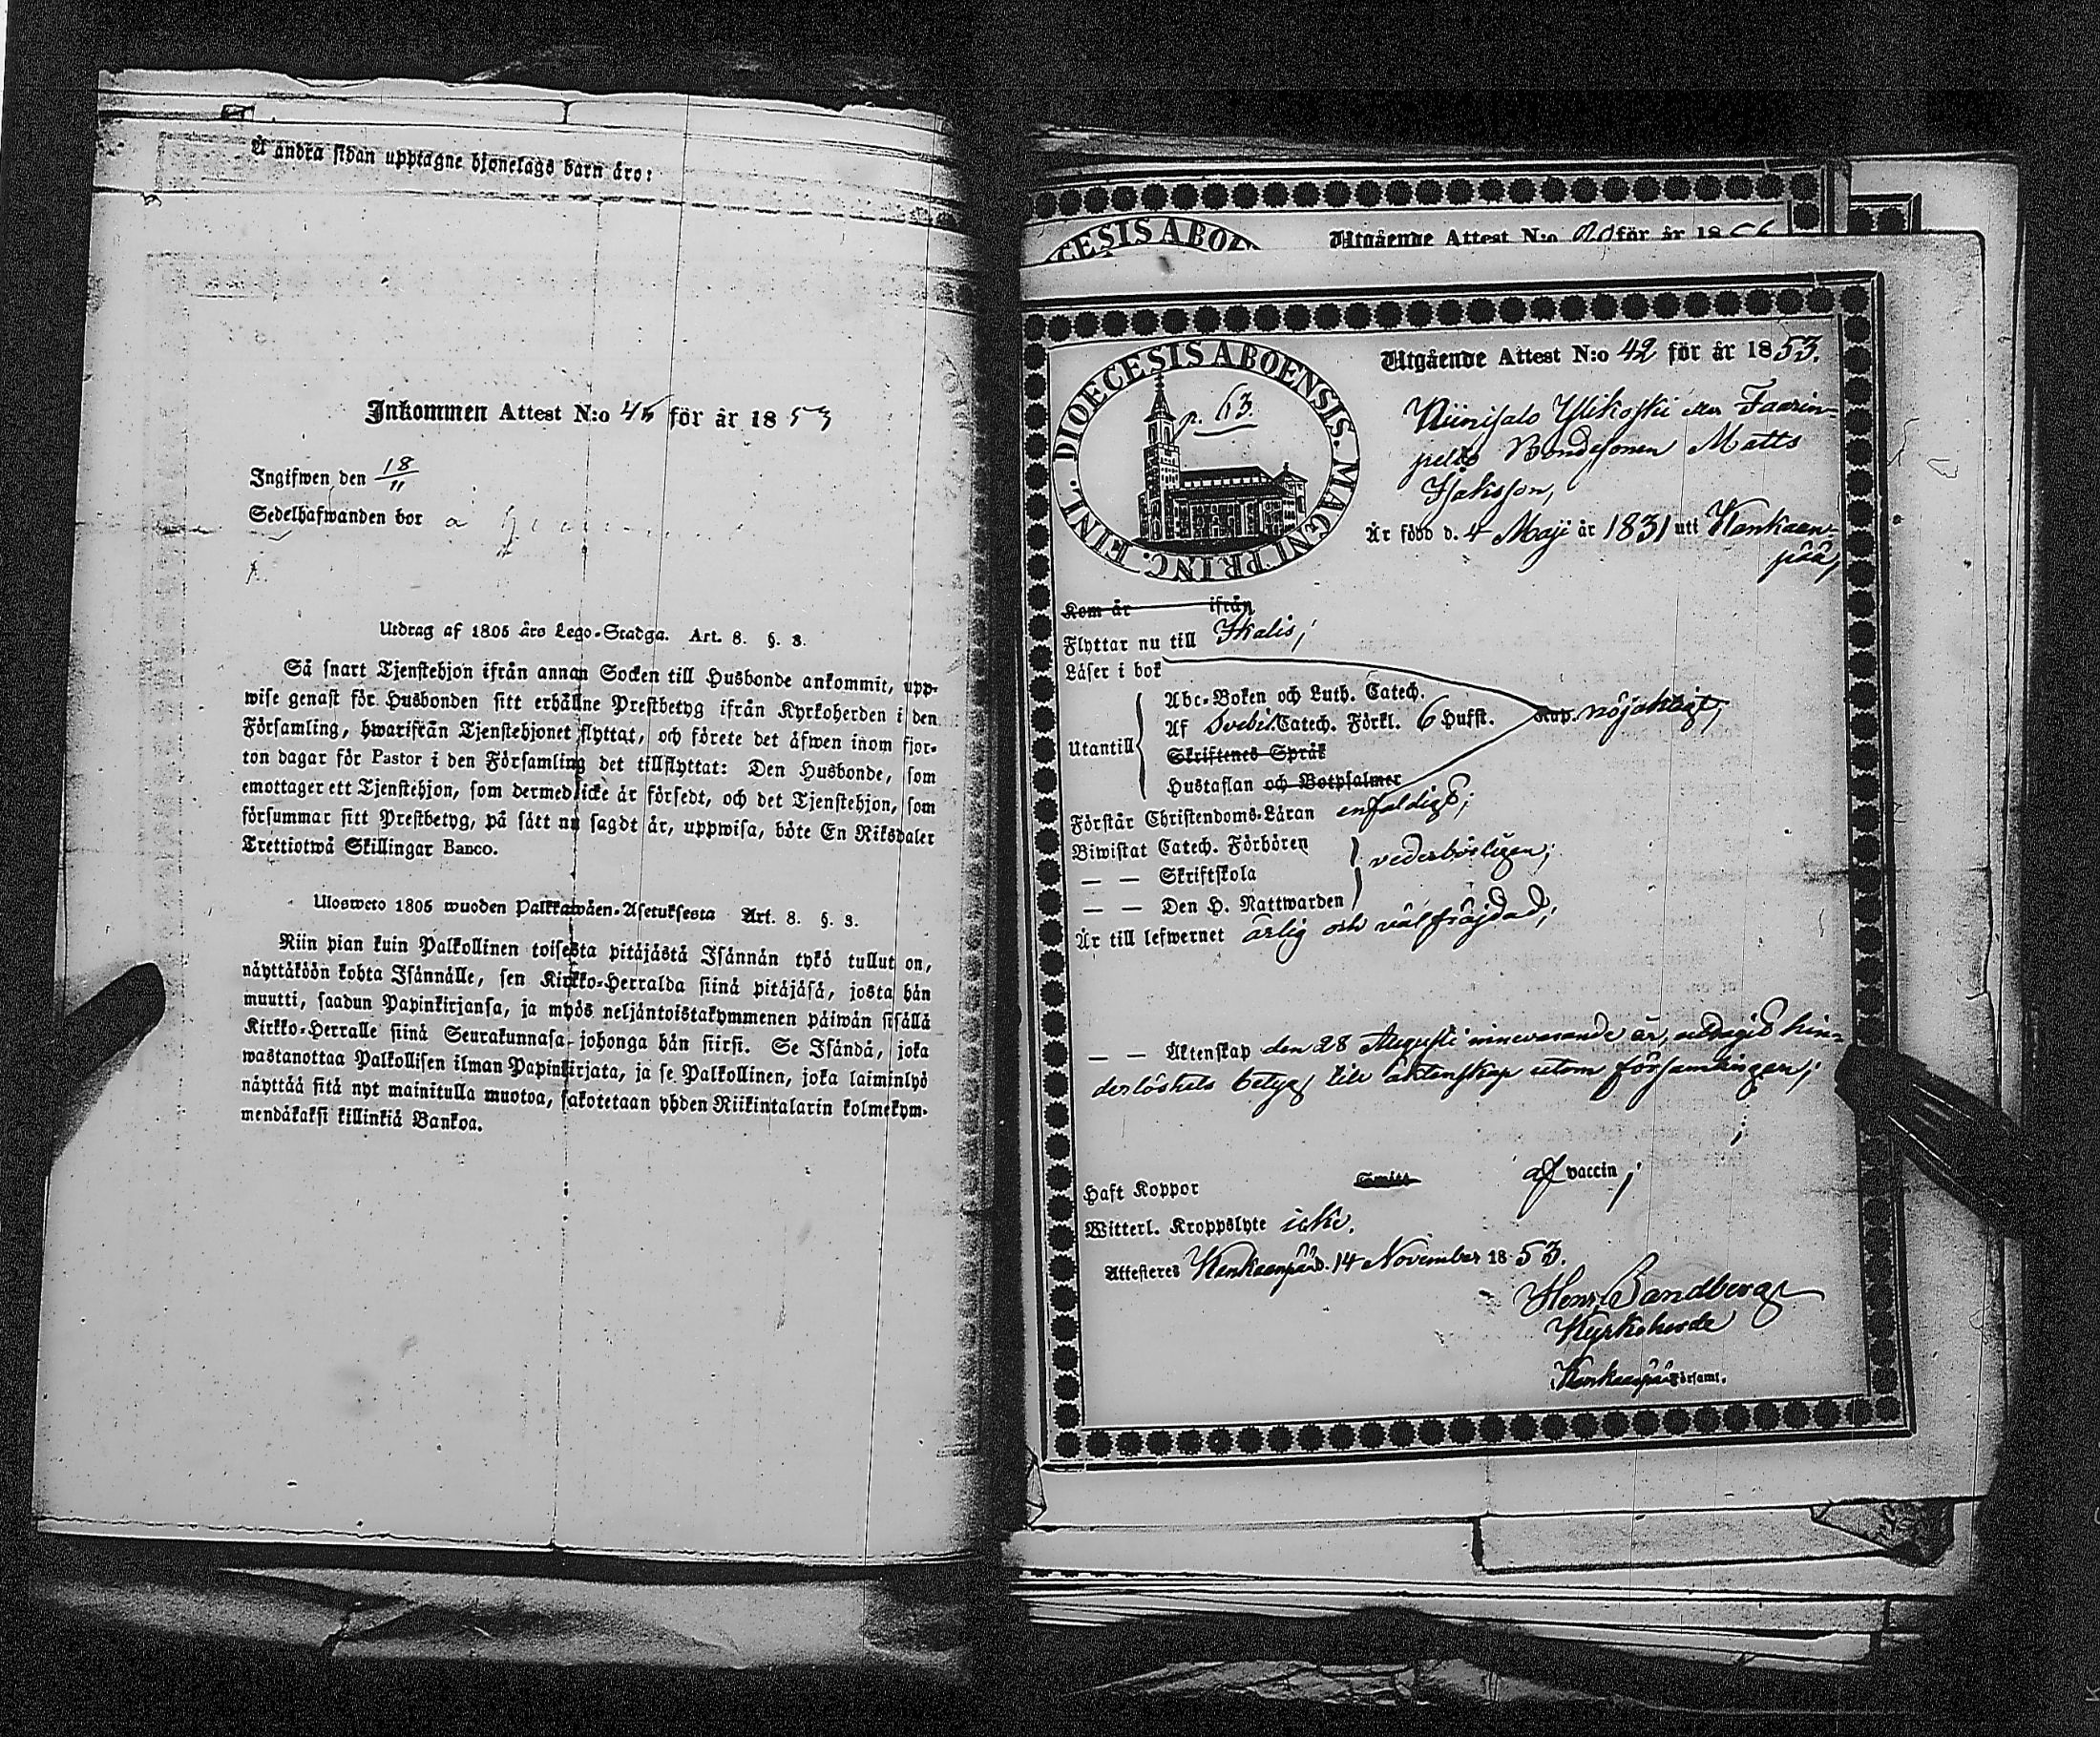 Å andra sidan upptagne hjonelags barn äro:
Inkommen Attest N:o 45 för år 1853
Ingifwen den 18/11
Sedelhafwanden bor å
Utdrag af 1805 års Lego-Stadga. Art. 8. §. 3.
Så snart Tjenstehjon ifrån annan Socken till Husbonde ankommit, upp-
wise genast för Husbonden sitt erhållne Prestbetyg ifrån Kyrkoherden i den
Församling, hwarifrån Tjenstehjonet flyttat, och förete det äfwen inom fjor-
ton dagar för Pastor i den Församling det tillflyttat: Den Husbonde, som
emottager ett Tjenstehjon, som dermed icke är försedt, och det Tjenstehjon, som
försummar sitt Prestbetyg, på sätt nu sagdt är, uppwisa, böte En Riksdaler
Trettiotwå Skillingar Banco.
Ulosweto 1805 wuoden Palkkawäen-Asetuksesta Art. 8. §. 3.
Niin pian kuin Palkollinen toisesta pitäjästä Isännän tykö tullut on,
näyttäköön kohta Isännälle, sen Kirkko-Herralda siinä pitäjäsä, josta hän
muutti, saadun Papinkirjansa, ja myös neljäntoistakymmenen päiwän sisällä
Kirkko-Herralle siinä Seurakunnasa, johonga hän siirsi. Se Isändä, joka
wastanottaa Palkollisen ilman Papinkirjata, ja se Palkollinen, joka laiminlyö
näyttää sitä nyt mainitulla muotoa, sakotetaan yhden Riikintalarin kolmekym-
mendäkaksi killinkiä Bankoa.
DIOECESIS ABOE
Utgående Attest N:o för år 18
DIOECESIS ABOENSIS. MAGNI PRINC. FINL.
p. 63.
Utgående Attest N:o 42 för år 1853.
Niinisalo Ylikoski eller Faarin-
pelto Bondesonen Matts
Isaksson,
Är född d. 4 Maji år 1831 uti Kankaan-
pää,
Kom år ifrån
Flyttar nu till Ikalis,
Läser i bok
Abc-Boken och Luth. Catech.
Utantill Af Svebil. Catech. Förkl. 6 Hufst. Kap. nöjaktigt;
Skriftenes Språk
Hustaflan och Botpsalmer
Förstår Christendoms-Läran enfaldigt;
Biwistat Catech. Förhören
— — Skriftskola vederbörligen;
— — Den H. Nattwarden
Är till lefwernet ärlig och välfräjdad;
— — Äktenskap den 28 Augusti innevarande år, uttagit hin-
derlöshets betyg till äktenskap utom församlingen;
Haft Koppor Smitt af vaccin;
Witterl. Kroppslyte icke.
Attesteres Kankaanpää d. 14 November 1853.
Henr. Sandberg
Kyrkoherde
Kankaanpää Församl.